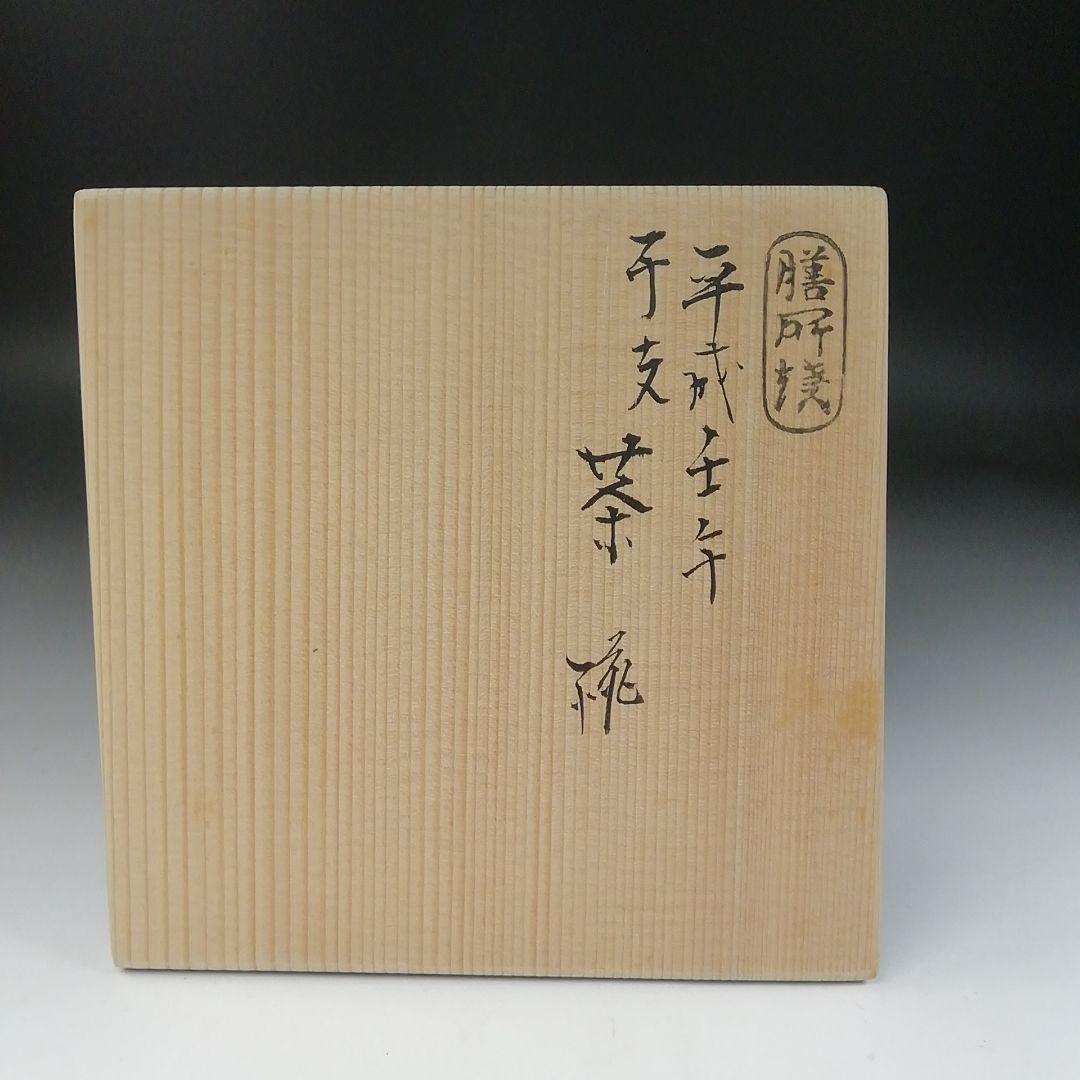 膳所焼
平成壬午
干支茶碗